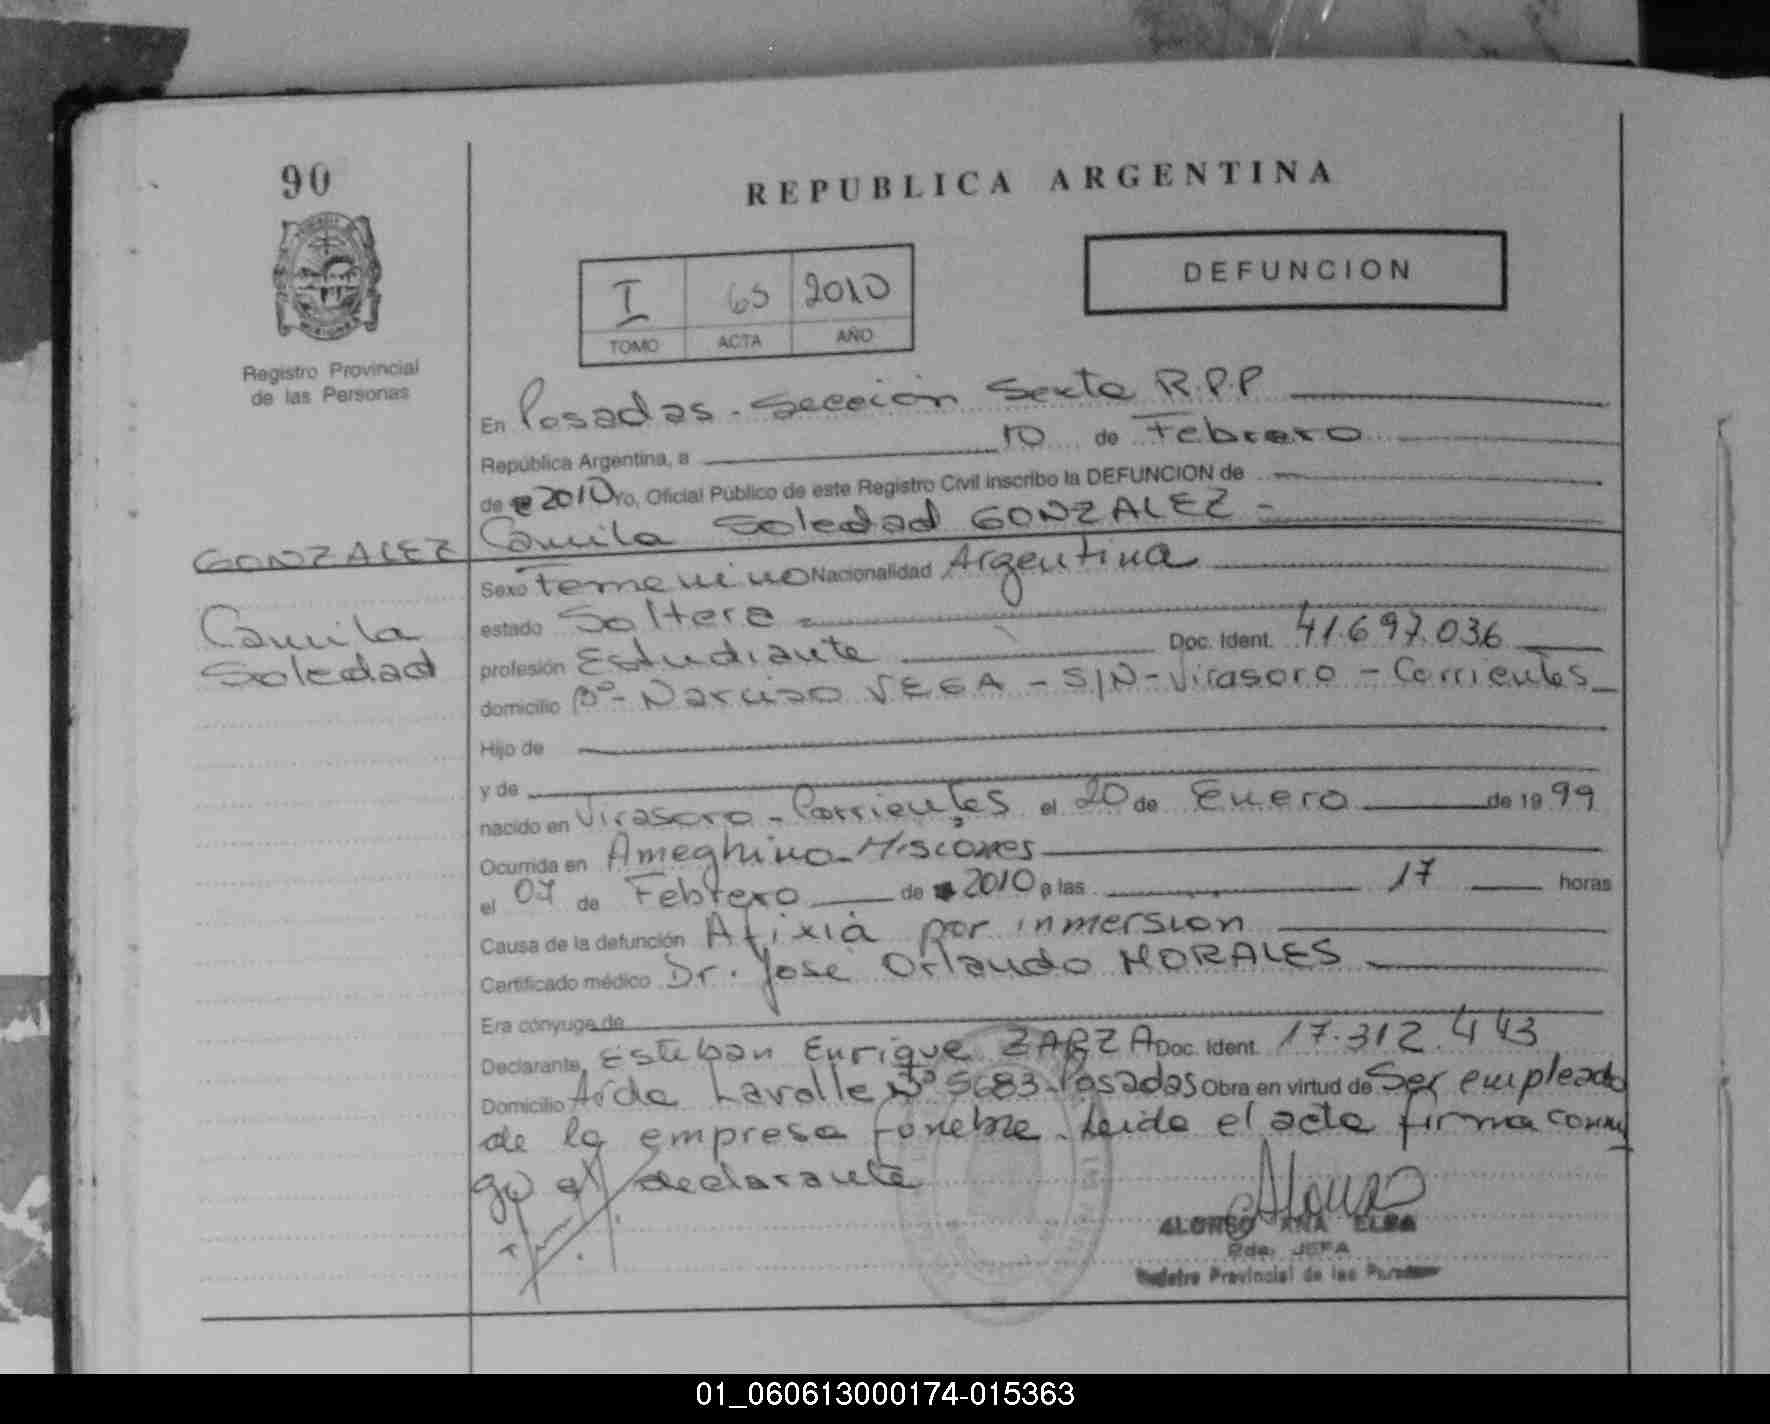 90
REPUBLICA ARGENTINA
DEFUNCION
I 65 2010
TOMO ACTA AÑO
Registro Provincial
de las Personas
En Posadas - Sección Sexta R.P.P
República Argentina, a 10 de Febrero
de 2010 Yo, Oficial Público de este Registro Civil inscribo la DEFUNCION de
Camila Soledad GONZALEZ -
GONZALEZ
Camila
Soledad
Sexo Femenino Nacionalidad Argentina
estado Soltera
profesión Estudiante Doc. Ident. 41.697.036
domicilio Bº - Narciso VEGA - S/N - Virasoro - Corrientes
Hijo de
y de
nacido en Virasoro - Corrientes el 20 de Enero de 19 99
Ocurrida en Ameghino - Misiones
el 07 de Febrero de 2010 a las 17 horas
Causa de la defunción Afixia por inmersion
Certificado médico Dr. Jose Orlando MORALES
Era cónyuge de
Declarante, Esteban Enrique ZARZA Doc. Ident. 17.312.443
Domicilio Avda Lavalle Nº 5683 - Posadas Obra en virtud de Ser empleado
de la empresa fúnebre. Leida el acta firma conmi
go el declarante
ALONSO ANA ELBA
JEFA
Registro Provincial de las Personas
01_060613000174-015363